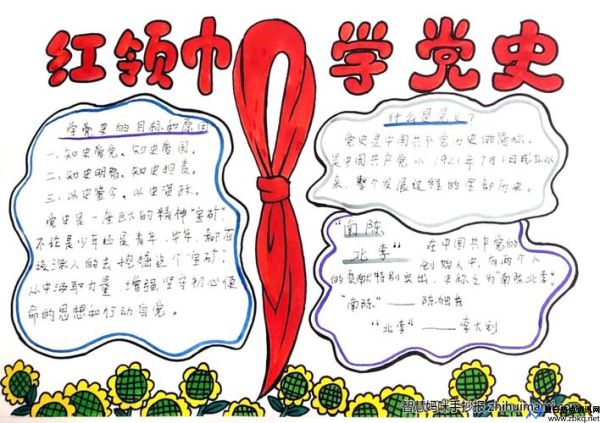 红领巾 学党史
学党史的目标和原因
一、知史爱党，知史爱国。
二、知史明智，知史担责。
三、以史鉴今，以史资政。
党史是一座巨大的精神"宝矿"
不论是少年还是青年、中年，都应
该深入的去挖掘这个"宝矿"，
从中汲取力量，增强坚守初心使
命的思想和行动自觉。
什么是党史？
党史是中国共产党历史的简称，
是中国共产党从1921年7月1日成立以
来，整个发展过程的全部历史。
"南陈
北李" 在中国共产党的
创始人中，有两个人
的贡献特别突出，史称之为"南陈北李"。
"南陈"——陈独秀
"北李"——李大钊
智慧妈咪手抄报 zhihuimami
www.zbkq.net